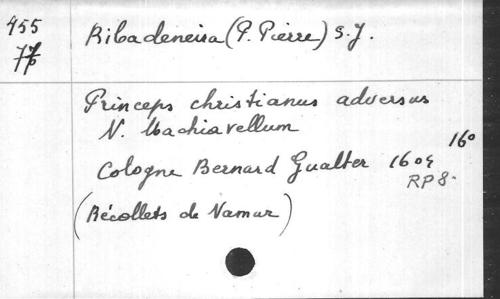 455
Ribadeneira (P. Pierre) S.J.
Princeps christianus adversus
N. Machiavellum
16°
Cologne Bernard Gualter 1604
RP 8.
(Récollets de Namur)